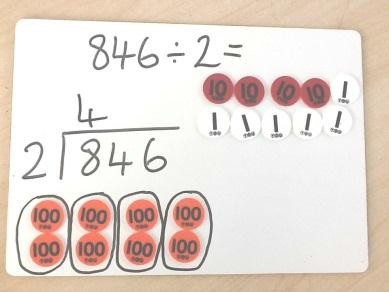 846÷2=
10 10 10 10 1
1 1 1 1 1
4
2 846
100 100 100 100
100 100 100 100